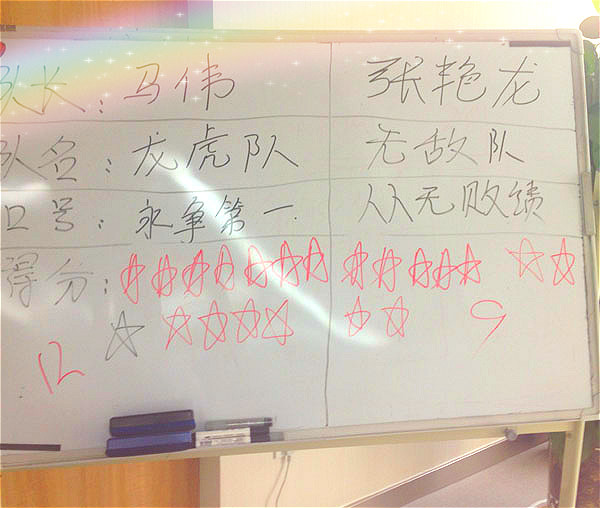 队长：马伟 张艳龙
队名：龙虎队 无敌队
口号：永争第一. 从无败绩
得分：
12 9